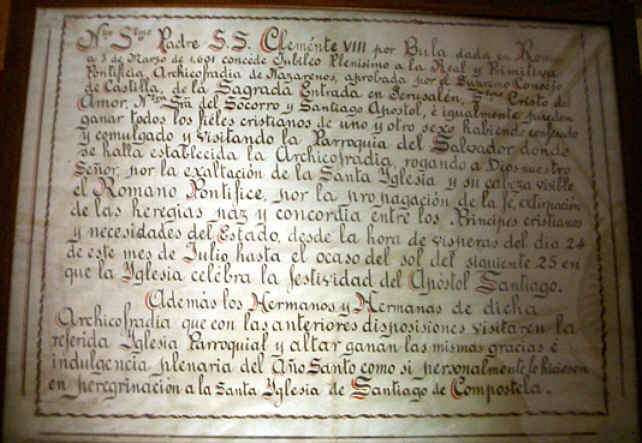 Ntro. Stmo. Padre S.S. Clemente VIII por Bula dada en Roma
a 5 de Marzo de 1.601 concede Jubileo Plenísimo a la Real y Primitiva
Pontificia, Archicofradia de Nazarenos, aprobada por el Supremo Consejo
de Castilla, de la Sagrada Entrada en Jerusalén, Stmo. Cristo de
Amor, Ntra. Sra. del Socorro y Santiago Apostol, é igualmente pueden
ganar todos los fieles cristianos de uno y otro sexo habiendo confesado
y comulgado y visitando la Parroquia del Salvador donde
se halla establecida la Archicofradia, rogando a Dios nuestro
Señor, por la exaltación de la Santa Iglesia y su cabeza visible
el Romano Pontifice, por la propagación de la fe, extirpación
de las heregias paz y concordia entre los Principes cristianos
y necesidades del Estado, desde la hora de visperas del dia 24
de este mes de Julio hasta el ocaso del sol del siguiente 25 en
que la Yglesia celébra la festividad del Apóstol Santiago.
Además los Hermanos y Hermanas de dicha
Archicofradia que con las anteriores disposiciones visitaren la
referida Yglesia Parroquial y altar ganan las mismas gracias é
indulgencia plenaria del Año Santo como si personalmente lo hiciesen
en peregrinación a la Santa Yglesia de Santiago de Compostela.